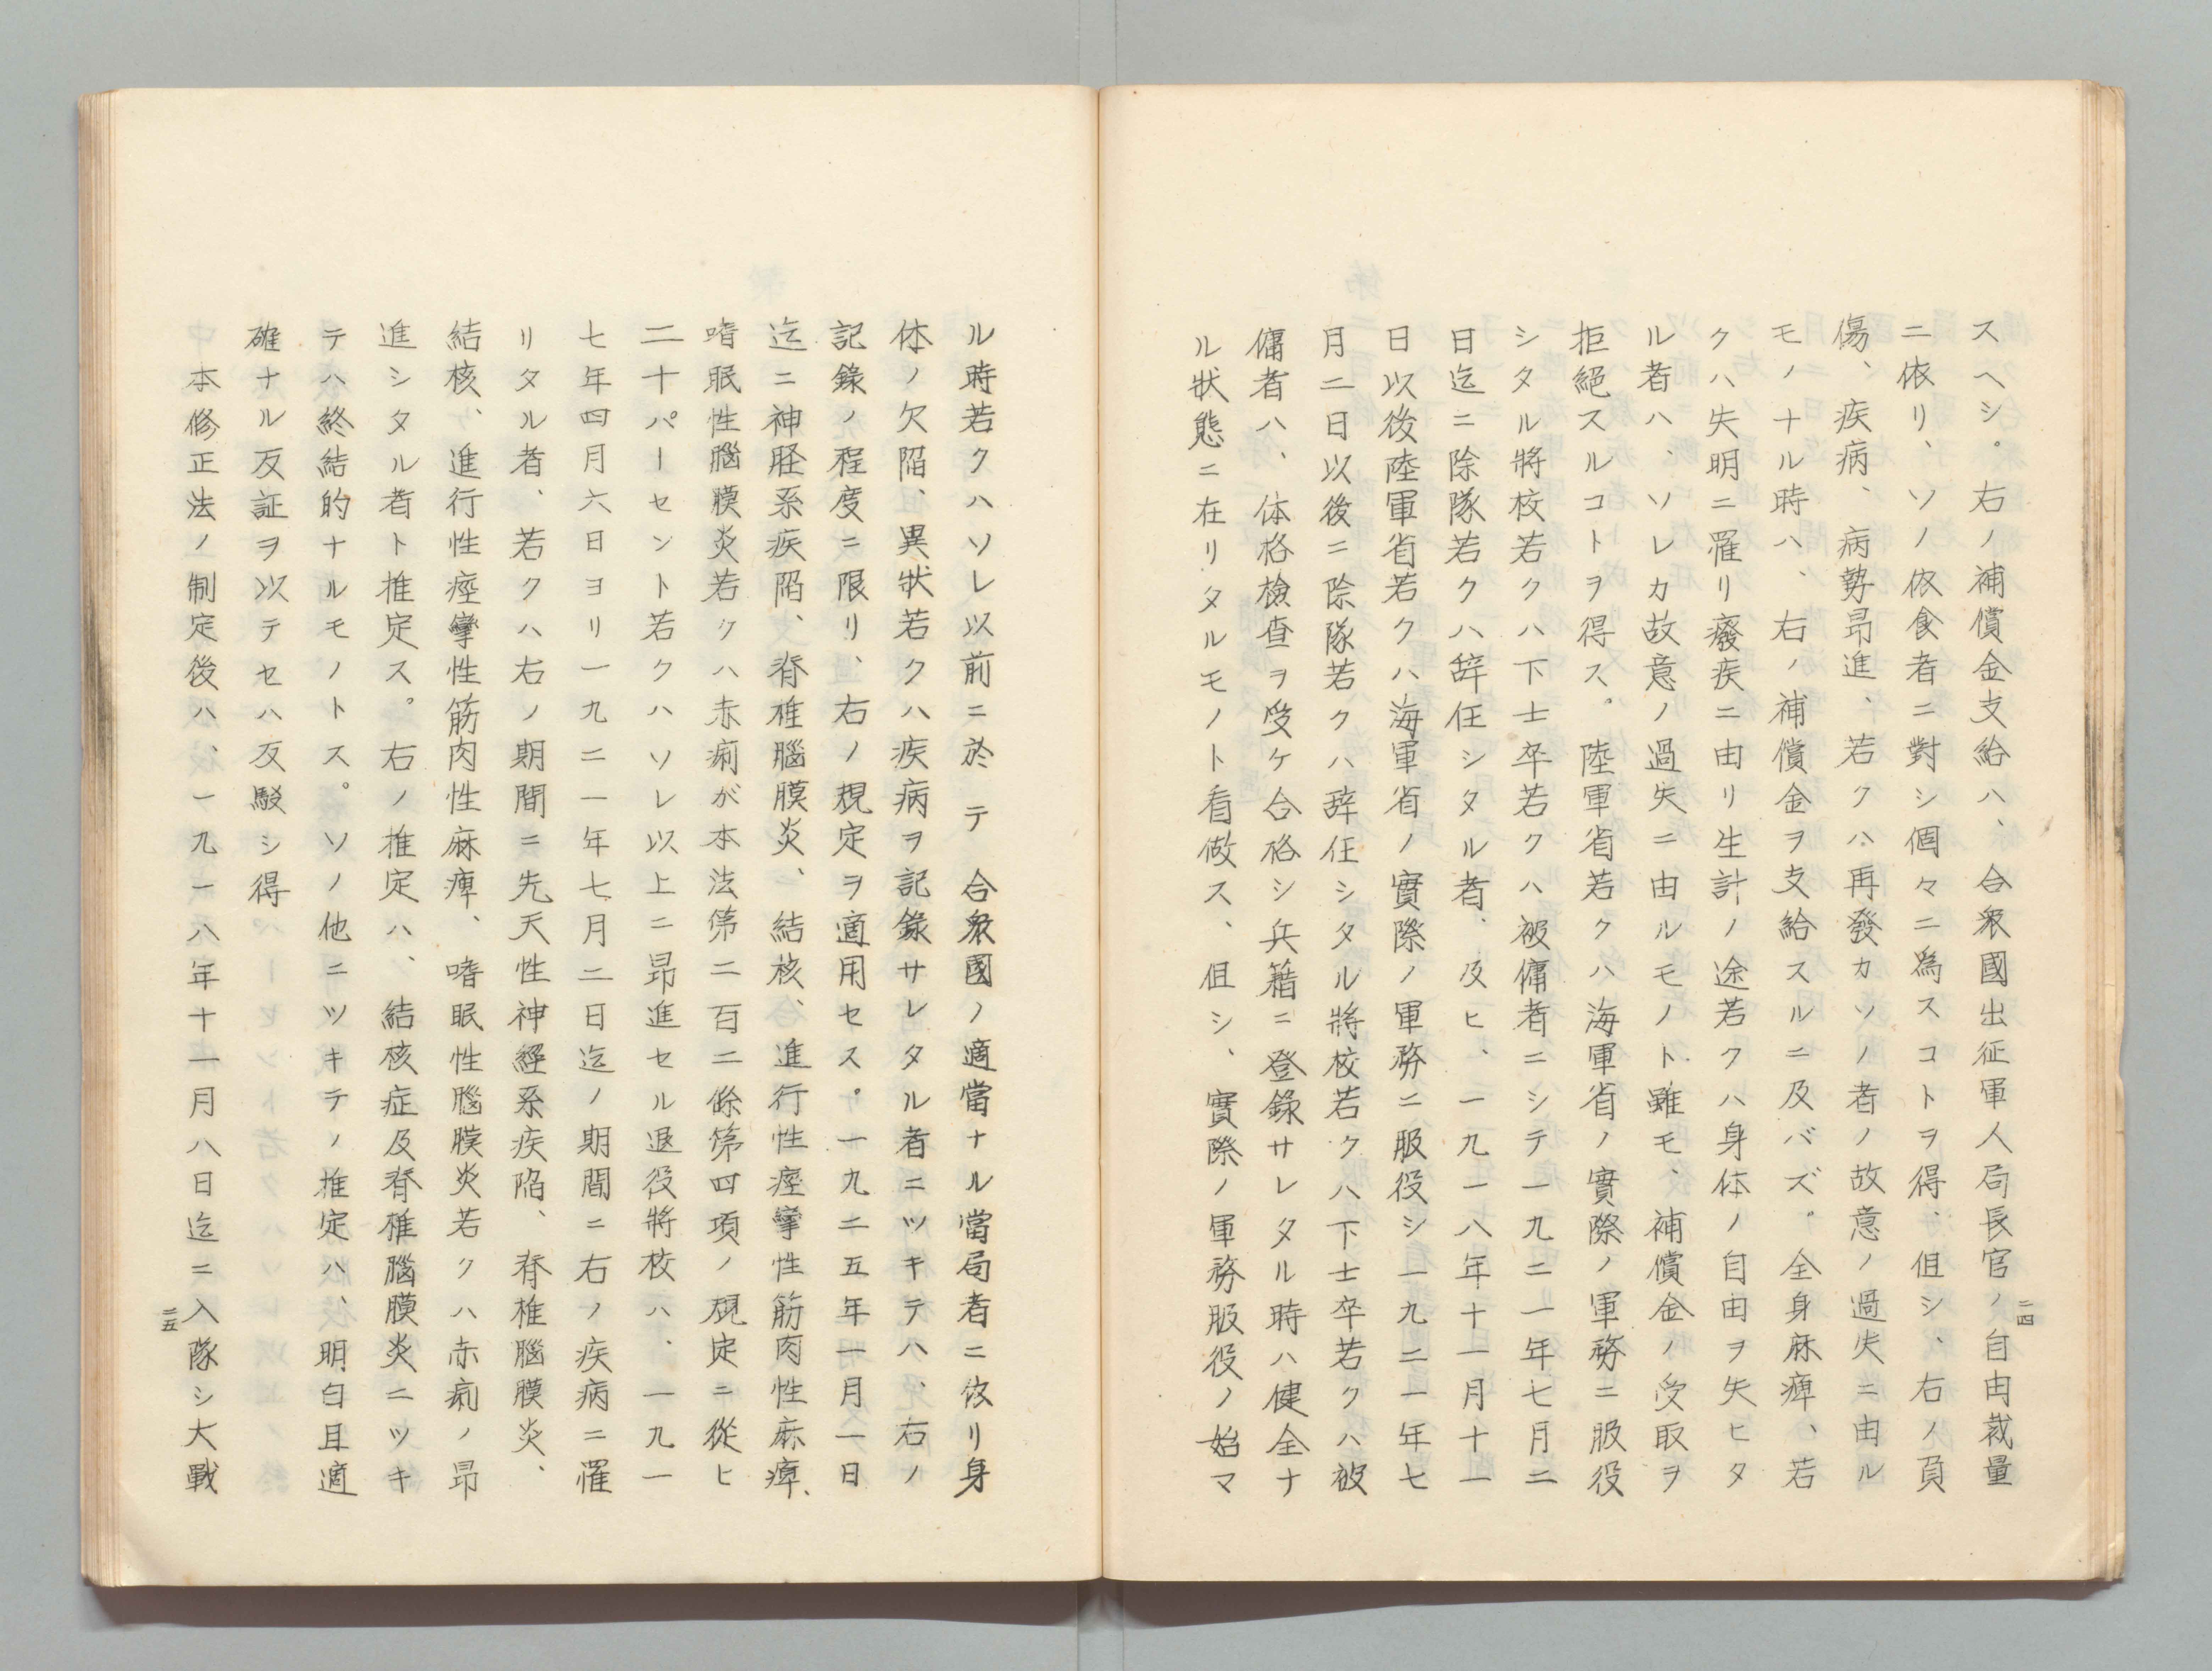 二四
スヘシ。右ノ補償金支給ハ、合衆國出征軍人局長官ノ自由裁量
ニ依リ、ソノ依食者ニ對シ個々ニ爲スコトヲ得、但シ、右ノ負
傷、疾病、病勢昂進、若クハ再發カソノ者ノ故意ノ過失ニ由ル
モノナル時ハ、右ノ補償金ヲ支給スルニ及バズ。全身麻痺、若
クハ失明ニ罹リ癈疾ニ由リ生計ノ途若クハ身体ノ自由ヲ失ヒタ
ル者ハ、ソレカ故意ノ過失ニ由ルモノト雖モ、補償金ノ受取ヲ
拒絕スルコトヲ得ス。陸軍省若クハ海軍省ノ實際ノ軍務ニ服役
シタル將校若クハ下士卒若クハ被傭者ニシテ一九二一年七月二
日迄ニ除隊若クハ辞任シタル者、及ヒ、一九一八年十一月十一
日以後陸軍省若クハ海軍省ノ實際ノ軍務ニ服役シ一九二一年七
月二日以後ニ除隊若クハ辞任シタル將校若クハ下士卒若クハ被
傭者ハ、体格檢查ヲ受ケ合格シ兵籍ニ登錄サレタル時ハ健全ナ
ル狀態ニ在リタルモノト看做ス、但シ、實際ノ軍務服役ノ始マ
ル時若クハソレ以前ニ於テ合衆國ノ適當ナル當局者ニ依リ身
体ノ欠陥、異狀若クハ疾病ヲ記錄サレタル者ニツキテハ、右ノ
記錄ノ程度ニ限リ、右ノ規定ヲ適用セス。一九二五年一月一日
迄ニ神経系疾陥、脊椎腦膜炎、結核、進行性痙攣性筋肉性麻痺、
嗜眠性腦膜炎若クハ赤痢が本法第二百二條第四項ノ規定ニ從ヒ
二十パーセント若クハソレ以上ニ昂進セル退役將校ハ、一九一
七年四月六日ヨリ一九二一年七月二日迄ノ期間ニ右ノ疾病ニ罹
リタル者、若クハ右ノ期間ニ先天性神經系疾陥、脊椎腦膜炎、
結核、進行性痙攣性筋肉性麻痺、嗜眠性腦膜炎若クハ赤痢ノ昂
進シタル者ト推定ス。右ノ推定ハ、結核症及脊椎腦膜炎ニツキ
テハ終結的ナルモノトス。ソノ他ニツキテノ推定ハ、明白且適
確ナル反証ヲ以テセハ反駁シ得
本修正法ノ制定後ハ、一九一八年十一月八日迄ニ入隊シ大戰
二五